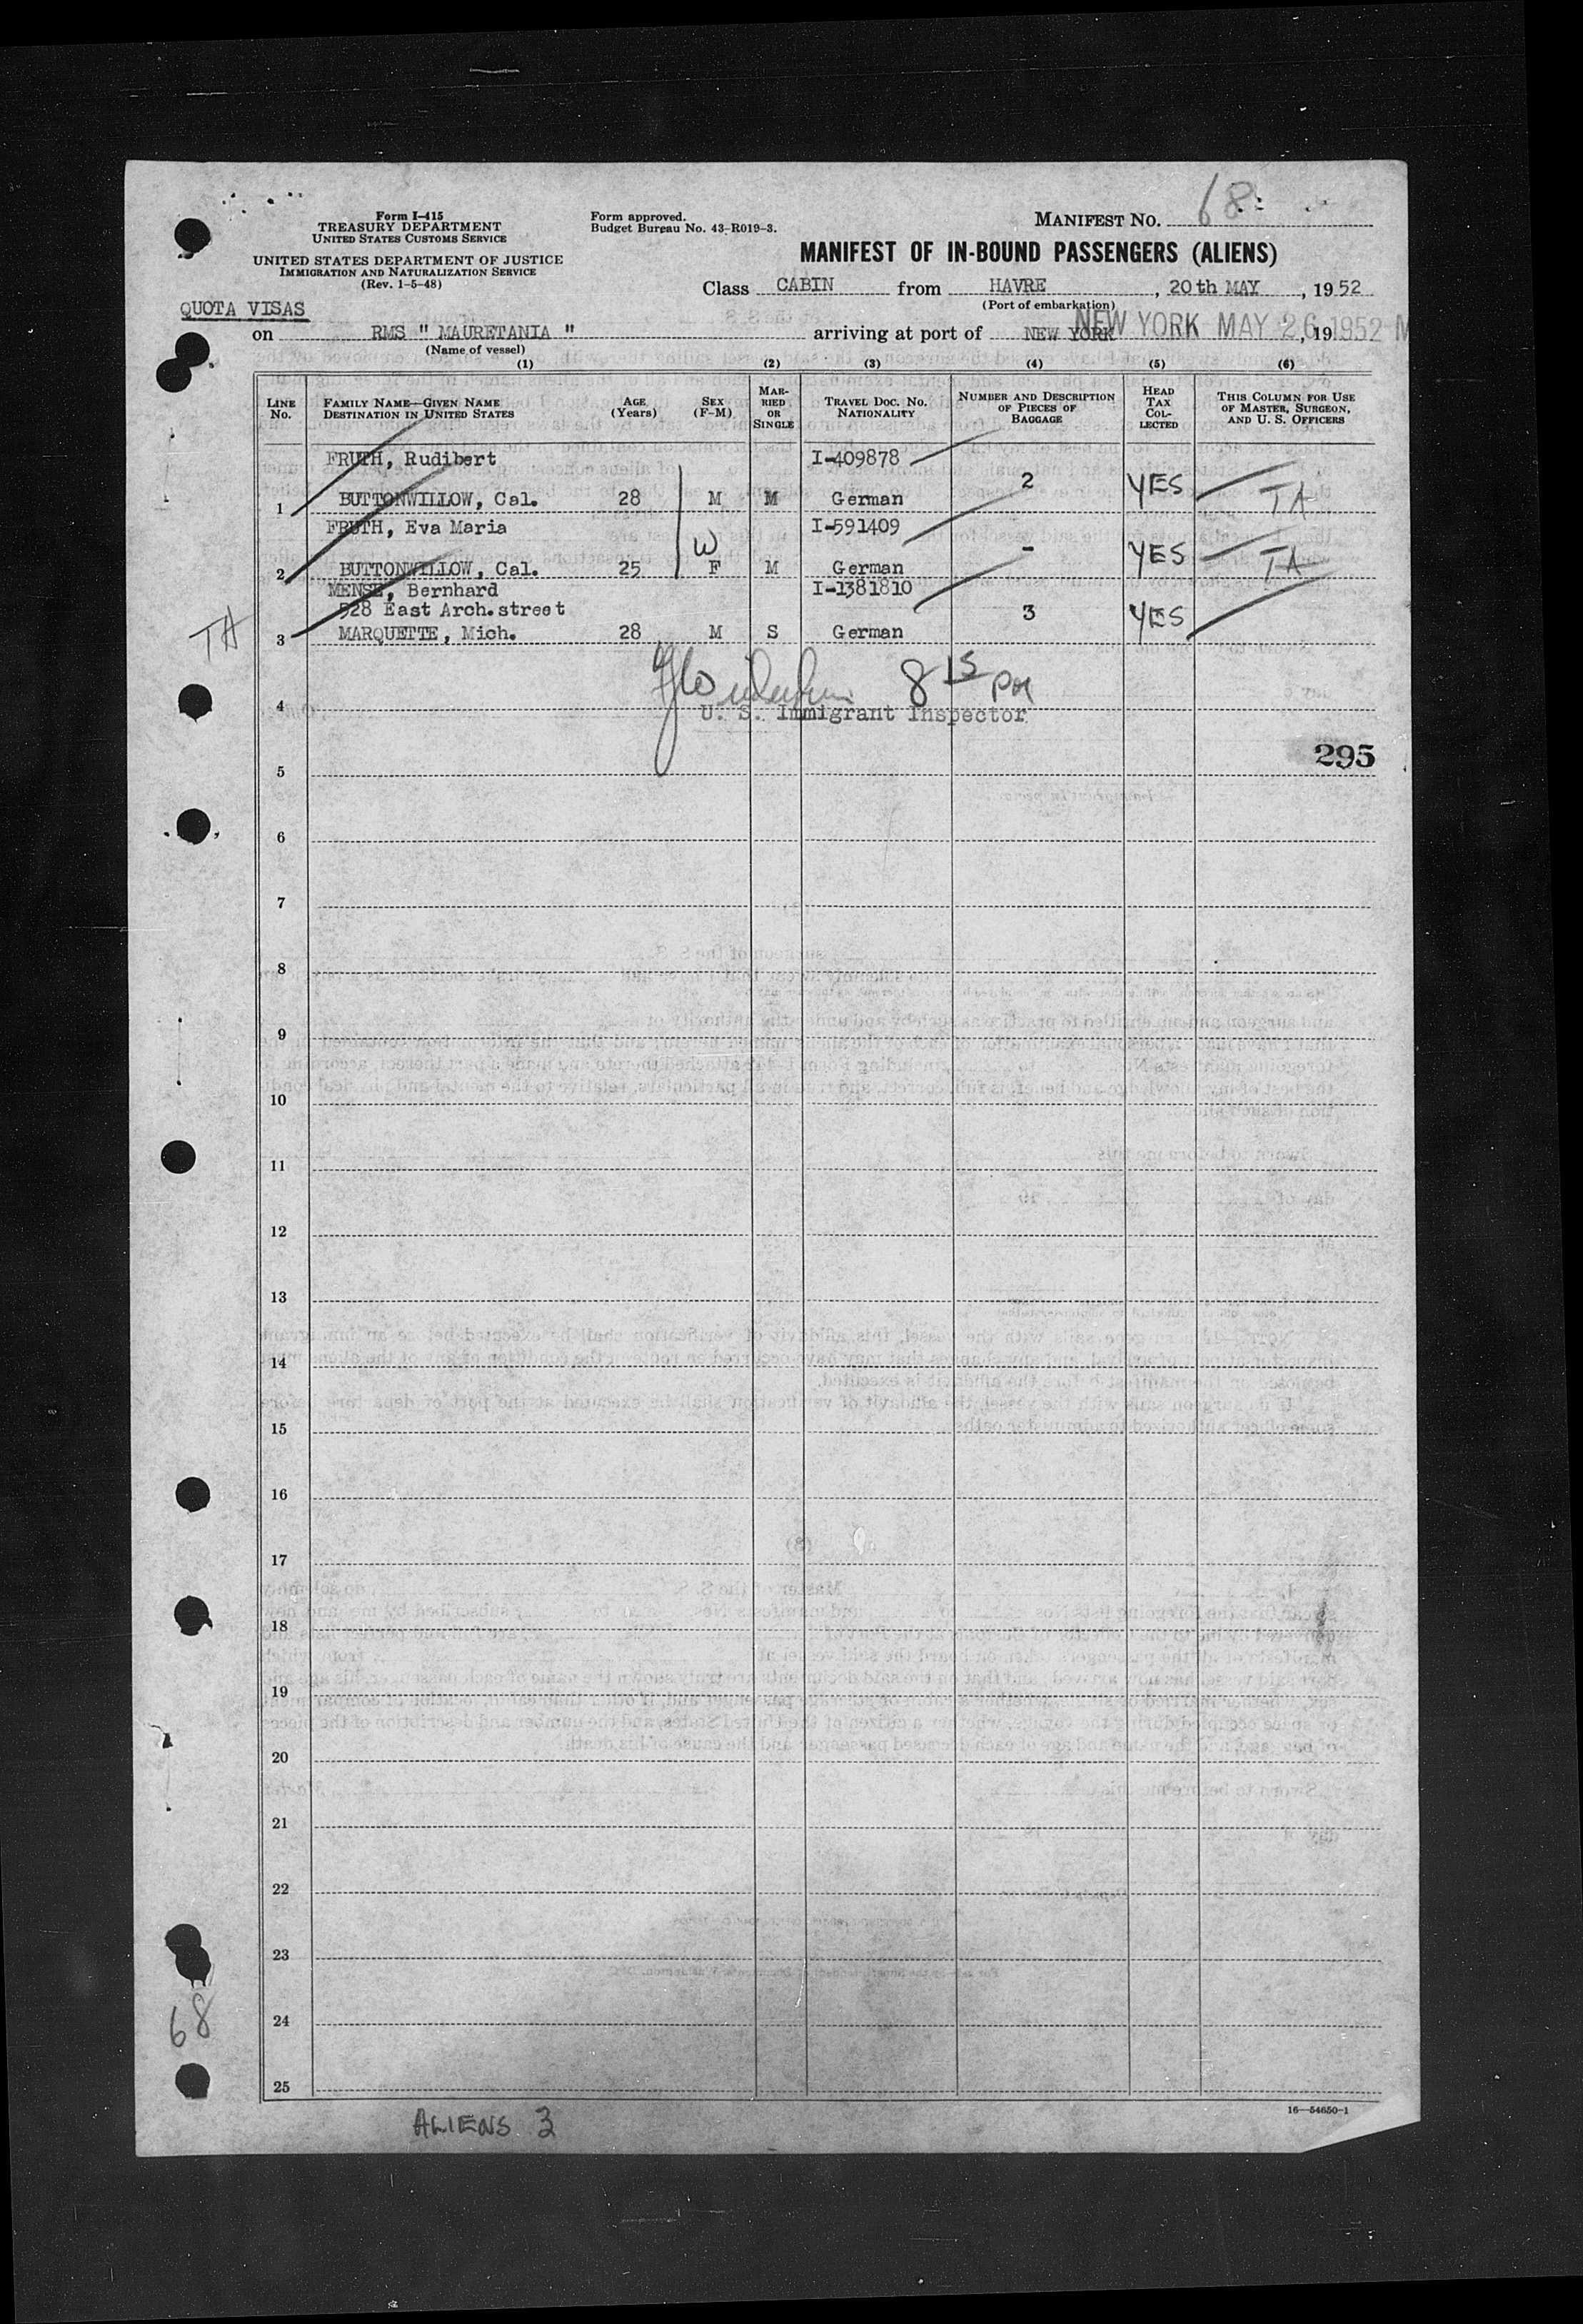 Form I-415
TREASURY DEPARTMENT
UNITED STATES CUSTOMS SERVICE
UNITED STATES DEPARTMENT OF JUSTICE
IMMIGRATION AND NATURALIZATION SERVICE
(Rev. 1-5-48)
Form approved.
Budget Bureau No. 43-R019-3.
MANIFEST NO. 68
MANIFEST OF IN-BOUND PASSENGERS (ALIENS)
Class CABIN from HAVRE, 20th MAY, 1952
(Port of embarkation)
QUOTA VISAS
on RMS " MAURETANIA " arriving at port of NEW YORK, 19
(Name of vessel)
NEW YORK MAY 26 1952
(1) (2) (3) (4) (5) (6)
LINE No. FAMILY NAME—GIVEN NAME DESTINATION IN UNITED STATES AGE (Years) SEX (F-M) MARRIED OR SINGLE TRAVEL DOC. NO. NATIONALITY NUMBER AND DESCRIPTION OF PIECES OF BAGGAGE HEAD TAX COLLECTED THIS COLUMN FOR USE OF MASTER, SURGEON, AND U. S. OFFICERS
FRUTH, Rudibert I-409878
1 BUTTONWILLOW, Cal. 28 M M German 2 YES TA
FRUTH, Eva Maria I-591409
W
2 BUTTONWILLOW, Cal. 25 F M German - YES TA
MENSE, Bernhard I-1381810
528 East Arch.street
TA 3 MARQUETTE, Mich. 28 M S German 3 YES
8 15 PM
4 U. S. Immigrant Inspector
295
5
6
7
8
9
10
11
12
13
14
15
16
17
18
19
20
21
22
23
24
68
25
16—54650-1
ALIENS 3